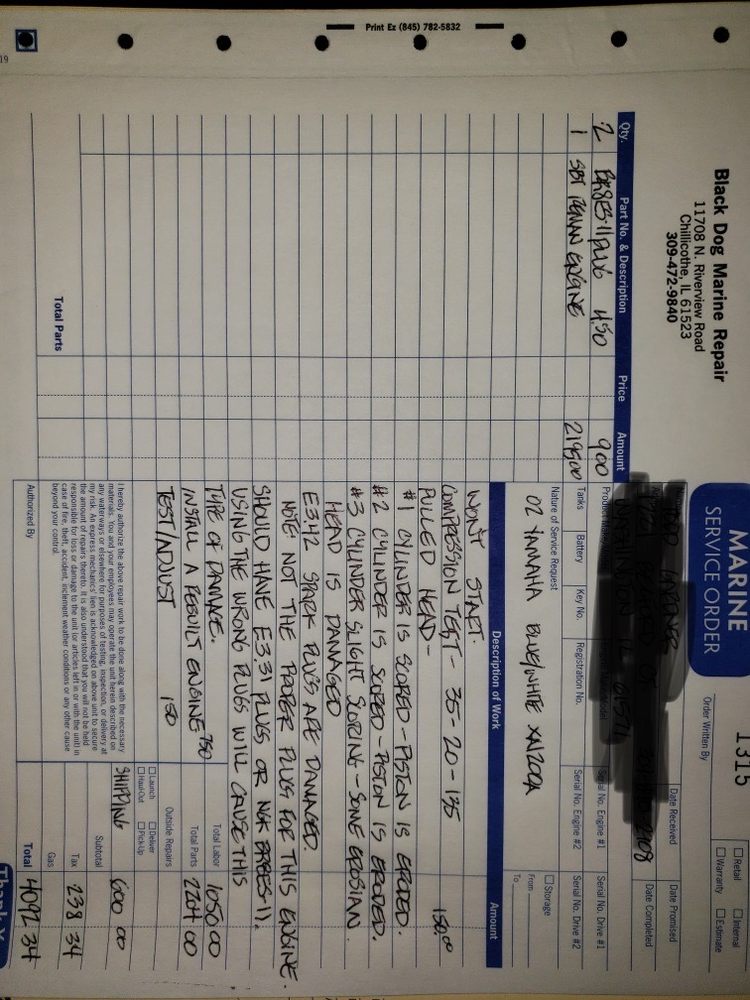 Print Ez (845) 782-5832
19
Black Dog Marine Repair
11708 N. Riverview Road
Chillicothe, IL 61523
309-472-9840
MARINE
SERVICE ORDER
1315
Retail
Internal
Warranty
Estimate
Order Written By
Date Received
Date Promised
Date Completed
Serial No. Engine #1
Serial No. Drive #1
Tanks
Battery
Key No.
Registration No.
Serial No. Engine #2
Serial No. Drive #2
Nature of Service Request
Storage
From
To
02 YAMAHA BLUE/WHITE XA1200A
Qty. Part No. & Description Price Amount
2 BR8ES-11 PLUG 4.50 9 00
1 SBT REMAN ENGINE 2195 00
Total Parts
Description of Work Amount
WON'T START.
COMPRESSION TEST - 35 - 20 - 135 150.00
PULLED HEAD -
#1 CYLINDER IS SCORED - PISTON IS ERODED.
#2 CYLINDER IS SCORED - PISTON IS ERODED.
#3 CYLINDER SLIGHT SCORING - SOME EROSIAN.
HEAD IS DAMAGED
E3.42 SPARK PLUGS ARE DAMAGED.
NOTE: NOT THE PROPER PLUG FOR THIS ENGINE.
SHOULD HAVE E3.31 PLUGS OR NGK BR8ES-11).
USING THE WRONG PLUGS WILL CAUSE THIS
TYPE OF DAMAGE.
INSTALL A REBUILT ENGINE 750
TEST/ADJUST 150
Total Labor 1050 00
Total Parts 2204 00
Outside Repairs
Launch
Deliver
Haul-Out
Pick-Up
SHIPPING 600 00
Subtotal
Tax 238 34
Gas
Total 4092 34
I hereby authorize the above repair work to be done along with the necessary
materials. You and your employees may operate the unit herein described on
any waterways or elsewhere for purposes of testing, inspection, or delivery at
my risk. An express mechanics' lien is acknowledged on above unit to secure
the amount of repairs thereto. It is also understood that you will not be held
responsible for loss or damage to the unit (or articles left in or with the unit) in
case of fire, theft, accident, inclement weather conditions or any other cause
beyond your control.
Authorized By